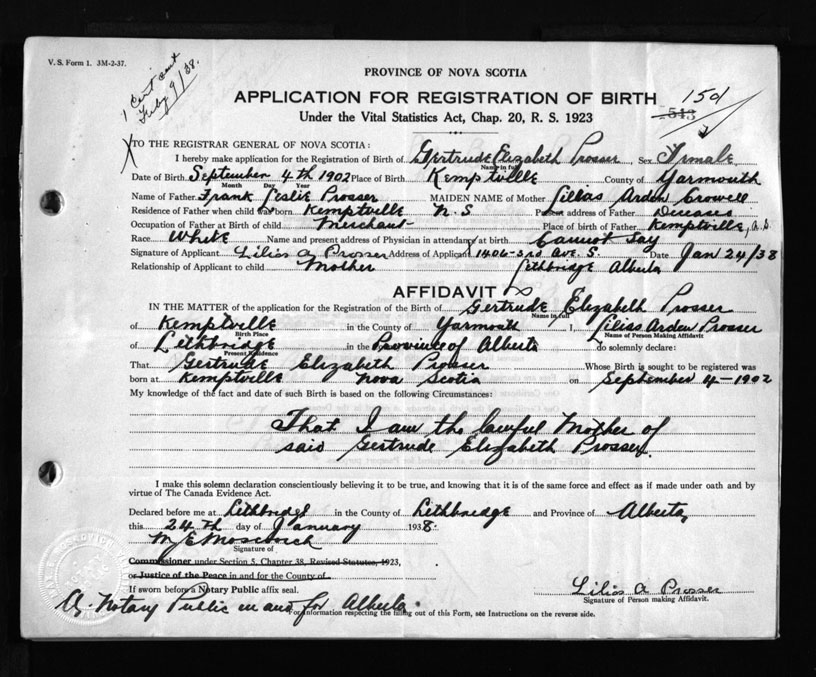 V. S. Form 1. 3M-2-37.
1 Cert sent
July 9/38.
PROVINCE OF NOVA SCOTIA
APPLICATION FOR REGISTRATION OF BIRTH
150
543
Under the Vital Statistics Act, Chap. 20, R. S. 1923
TO THE REGISTRAR GENERAL OF NOVA SCOTIA:
I hereby make application for the Registration of Birth of Gertrude Elizabeth Prosser, Sex Female
Name in full
Date of Birth September 4th 1902 Place of Birth Kemptville County of Yarmouth
Month Day Year
Name of Father Frank Leslie Prosser MAIDEN NAME of Mother Lillas Arden Crowell
Residence of Father when child was born Kemptville N.S Present address of Father Deceased
Occupation of Father at Birth of child Merchant Place of birth of Father Kemptville, N.S.
Race White Name and present address of Physician in attendance at birth Cannot Say
Signature of Applicant Lilios A Prosser Address of Applicant 1406-3rd Ave. S. Date Jan 24/38
Relationship of Applicant to child Mother Lethbridge Alberta
AFFIDAVIT
IN THE MATTER of the application for the Registration of Birth of Gertrude Elizabeth Prosser
Name in full
of Kemptville in the County of Yarmouth I, Liliss Arden Prosser
Birth Place Name of Person Making Affidavit
of Lethbridge in the Province of Alberta do solemnly declare:
Present Residence
That Gertrude Elizabeth Prosser Whose Birth is sought to be registered was
born at Kemptville Nova Scotia on September 4-1902
My knowledge of the fact and date of such Birth is based on the following Circumstances:
That I am the lawful Mother of
said Gertrude Elizabeth Prosser.
I make this solemn declaration conscientiously believing it to be true, and knowing that it is of the same force and effect as if made under oath and by
virtue of The Canada Evidence Act.
Declared before me at Lethbridge in the County of Lethbridge and Province of Alberta,
this 24th day of January 1938.
M E Moscovich
Signature of
Commissioner under Section 5, Chapter 38, Revised Statutes, 1923,
or Justice of the Peace in and for the County of
If sworn before a Notary Public affix seal.
Lilios A Prosser
Signature of Person making Affidavit.
A. Notary Public in and for Alberta.
For information respecting the filling out of this Form, see Instructions on the reverse side.